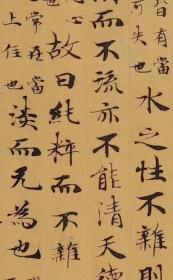 皆有當
可失也
水之性不雜則
而不流亦不能清天德
心
故曰純粹而不雜
常在當
上住也
淡而无為也